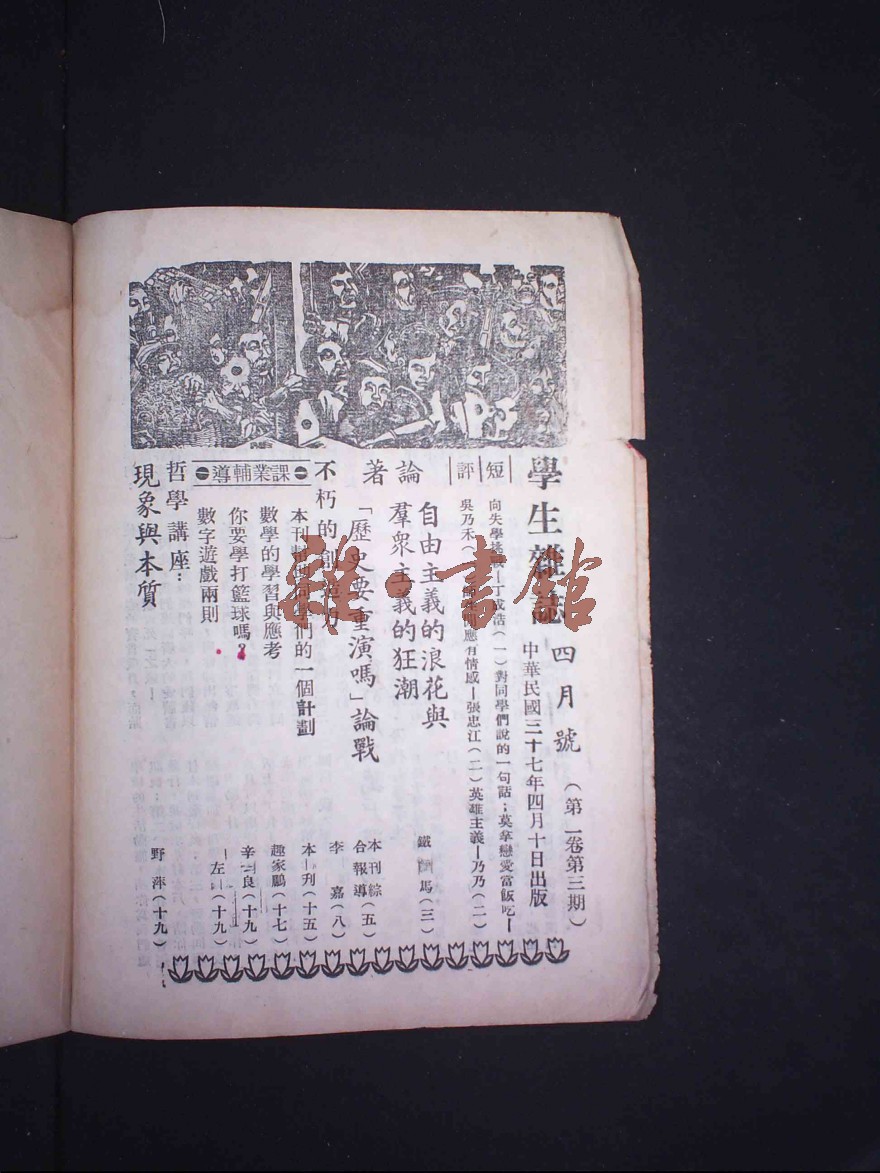 學生雜誌 四月號 (第一卷第三期)
中華民國三十七年四月十日出版
短評
向失學 丁成浩(一)對同學們說的一句話;莫拿戀愛當飯吃—
吳乃禾( 應有情感—張忠江(二)英雄主義—乃乃(二)
論著
自由主義的浪花與
羣衆主義的狂潮 鐵 馬(三)
「歷史要重演嗎」論戰 本刊綜合報導(五)
不朽的創造力 李 嘉(八)
●課業輔導●
本刊 同學們的一個計劃 本—刊(十五)
數學的學習與應考 趣家鵬(十七)
你要學打籃球嗎? 辛—良(十九)
數字遊戲兩則 —左—(十九)
哲學講座:
現象與本质 野 萍(十九)
雜·書館